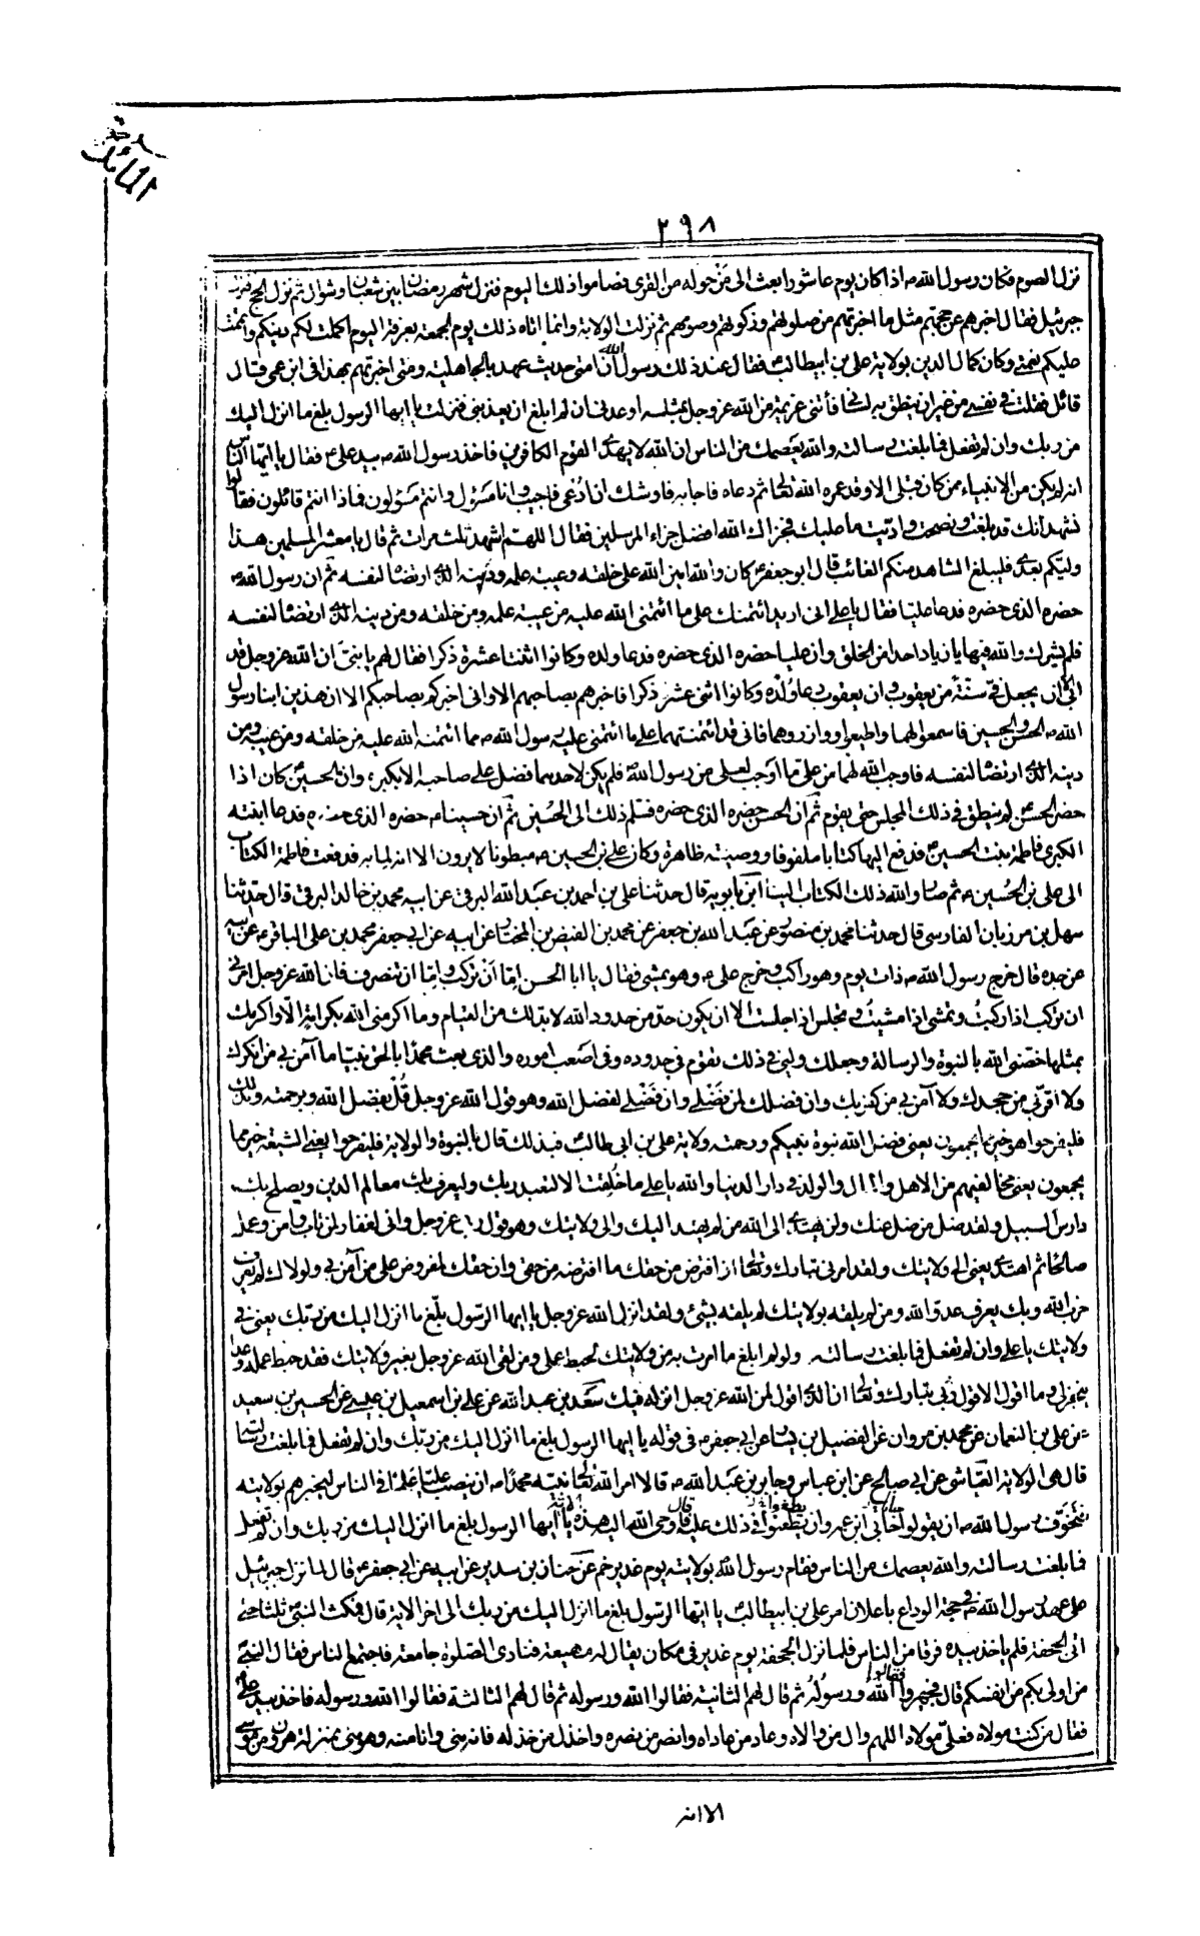 المائدة
٢٩٨
نزل الصوم فكان رسول الله ص اذا كان يوم عاشورا بعث الى من حوله من القرى فصاموا ذلك اليوم فنزل شهر رمضان بين شعبان وشوال ثم نزل الحج فنزل
جبرئيل فقال اخبرهم عن حجهم مثل ما اخبرتهم من صلوتهم وزكوتهم وصومهم ثم نزلت الولاية وانما اتاه ذلك يوم الجمعة بعرفة اليوم اكملت لكم دينكم واتممت
عليكم نعمتى وكان كمال الدين بولاية على بن ابيطالب فقال عند ذلك رسول الله ان امتى حديث عهد بالجاهلية ومتى اخبرتهم بهذا فى ابن عمى فقال
قائل فقلت فى نفسى من غير ان ينطق به لسانى فأتتنى عزيمة من الله عز وجل بتلة اوعدنى ان لم ابلغ ان يعذبنى فنزلت يا ايها الرسول بلغ ما انزل اليك
من ربك وان لم تفعل فما بلغت رسالته والله يعصمك من الناس ان الله لا يهدى القوم الكافرين فاخذ رسول الله ص بيد على ع فقال يا ايها الناس
انه لم يكن من الانبياء ممن كان قبلى الا وقد عمره الله تعالى ثم دعاه فاجابه فاوشك ان ادعى فاجيب وانا مسؤل وانتم مسؤلون فماذا انتم قائلون فقالوا
نشهد انك قد بلغت ونصحت واديت ما عليك فجزاك الله افضل جزاء المرسلين فقال اللهم اشهد ثلث مرات ثم قال يا معشر المسلمين هذا
وليكم بعدى فليبلغ الشاهد منكم الغائب قال ابو جعفر ع كان والله امين الله على خلقه وعيبة علمه ودينه الذى ارتضاه لنفسه ثم ان رسول الله ص
حضره الذى حضره فدعا عليا فقال يا على انى اريد ائتمنك على ما ائتمنى الله عليه من عيبة علمه ومن خلقه ومن دينه الذى ارتضاه لنفسه
فلم يشرك والله فيها يا زياد احدا من الخلق وان عليا حضره الذى حضره فدعا ولده وكانوا اثنتا عشرة ذكرا فقال لهم يا بنى ان الله عز وجل قد
ابى الا ان يجعل فى سنة من يعقوب وان يعقوب دعا ولده وكانوا اثنى عشر ذكرا فاخبرهم بصاحبهم الا وانى اخبركم بصاحبكم الا ان هذين ابنا رسول
الله ص الحسن والحسين فاسمعوا لهما واطيعوا ووازروهما فانى قد ائتمنتهما على ما ائتمنى عليه رسول الله ص مما ائتمنه الله عليه من خلقه ومن غيبه ومن
دينه الذى ارتضاه لنفسه فاوجب الله لهما من على ما اوجب لعلى من رسول الله فلم يكن لاحد منهما فضل على صاحبه الا بكبره وان الحسين كان اذا
حضر الحسن لم ينطق فى ذلك المجلس حتى يقوم ثم ان الحسن حضره الذى حضره فسلم ذلك الى الحسين ثم ان حسينا ع حضره الذى حضره فدعا ابنته
الكبرى فاطمة بنت الحسين ع فدفع اليها كتابا ملفوفا ووصية ظاهرة وكان على بن الحسين ع مبطونا لا يرون الا انه لما به فدفعت فاطمة الكتاب
الى على بن الحسين ع ثم صار والله ذلك الكتاب الينا ابن بابويه قال حدثنا على بن احمد بن عبد الله البرقى عن ابيه محمد بن خالد البرقى قال حدثنا
سهل بن مرزبان الفارسى قال حدثنا محمد بن منصور عن عبد الله بن جعفر عن محمد بن الفيض بن المختار عن ابيه عن ابى جعفر محمد بن على الباقر ع عن ابيه
عن جده قال خرج رسول الله ص ذات يوم وهو راكب وخرج على ع وهو يمشى فقال يا ابا الحسن اما ان تركب واما ان تنصرف فان الله عز وجل امرنى
ان تركب اذا ركبت وتمشى اذا مشيت وتجلس اذا جلست الا ان يكون حد من حدود الله لا بد لك من القيام وما اكرمنى الله بكرامة الا واكرمك
بمثلها خصنى الله بالنبوة والرسالة وجعلك وليى فى ذلك تقوم فى حدوده وفى اصعب اموره والذى بعث محمدا بالحق نبيا ما آمن بى من انكرك
ولا اقر بى من جحدك ولا آمن بى من كفر بك وان فضلك لمن فضلى وان فضلى لفضل الله وهو قول الله عز وجل قل بفضل الله وبرحمته فبذلك
فليفرحوا هو خير مما يجمعون يعنى فضل الله نبوة نبيكم ورحمته ولاية على بن ابى طالب فبذلك قال بالنبوة والولاية فليفرحوا يعنى الشيعة خير مما
يجمعون يعنى مخالفيهم من الاهل والمال والولد فى دار الدنيا والله يا على ما خلقت الا لتعبد ربك وليعرف بك معالم الدين ويصلح بك
دارس السبيل ولقد ضل من ضل عنك ولن يهتدى الى الله من لم يهتد اليك والى ولايتك وهو قول ربى عز وجل وانى لغفار لمن تاب وآمن وعمل
صالحا ثم اهتدى يعنى الى ولايتك ولقد امرنى تبارك وتعالى ان افترض من حقك ما افترضه من حقى وان حقك لمفروض على من آمن بى ولولاك لم يعرف
حزب الله وبك يعرف عدو الله ومن لم يلقه بولايتك لم يلقه بشئ ولقد انزل الله عز وجل يا ايها الرسول بلغ ما انزل اليك من ربك يعنى فى
ولايتك يا على وان لم تفعل فما بلغت رسالته ولو لم ابلغ ما امرت به من ولايتك لحبط عملى ومن لقى الله عز وجل بغير ولايتك فقد حبط عمله وعدا
ينجز لى وما اقول الا قول ربى تبارك وتعالى ان الذى اقول لمن الله عز وجل انزله فيك سعد بن عبد الله عن على بن اسمعيل بن عيسى عن الحسين بن سعيد
عن على بن النعمان عن محمد بن مروان عن الفضيل بن يسار عن ابى جعفر ع فى قوله يا ايها الرسول بلغ ما انزل اليك من ربك وان لم تفعل فما بلغت رسالته
قال هى الولاية العياشى عن ابى صالح عن ابن عباس وجابر بن عبد الله ص قالا امر الله تعالى نبيه محمدا ص ان ينصب عليا علما فى الناس ليخبرهم بولايته
فتخوف رسول الله ص ان يقولوا حابى ابن عمه وان يطعنوا فى ذلك عليه قال فاوحى الله اليه هذه الاية يا ايها الرسول بلغ ما انزل اليك من ربك وان لم تفعل
فما بلغت رسالته والله يعصمك من الناس فقام رسول الله بولايته يوم غدير خم عن حنان بن سدير عن ابيه عن ابى جعفر ع قال لما نزل جبرئيل
على عهد رسول الله ص فى حجة الوداع باعلان امر على بن ابيطالب يا ايها الرسول بلغ ما انزل اليك من ربك الى اخر الاية قال فمكث النبى ثلثا حتى
اتى الجحفة فلم ياخذ بيده فرقا من الناس فلما نزل الجحفة يوم غدير فى مكان يقال له مهيعة فنادى الصلوة جامعة فاجتمع الناس فقال النبى
من اولى بكم من انفسكم قال فجهروا فقالوا الله ورسوله ثم قال لهم الثانية فقالوا الله ورسوله ثم قال لهم الثالثة فقالوا الله ورسوله فاخذ بيد على
فقال من كنت مولاه فعلى مولاه اللهم وال من والاه وعاد من عاداه وانصر من نصره واخذل من خذله فانه منى وانا منه وهو منى بمنزلة هرون من موسى
الا انه